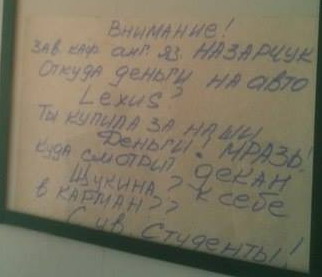 ВНИМАНИЕ!
ЗАВ КАФ АНГ ЯЗ. НАЗАРЧУК
Откуда деньги на авто
Lexus?
Ты купила за наши
Деньги! МРАЗЬ!
куда смотрит декан
Щукина? к себе
в карман??
С ув. Студенты!